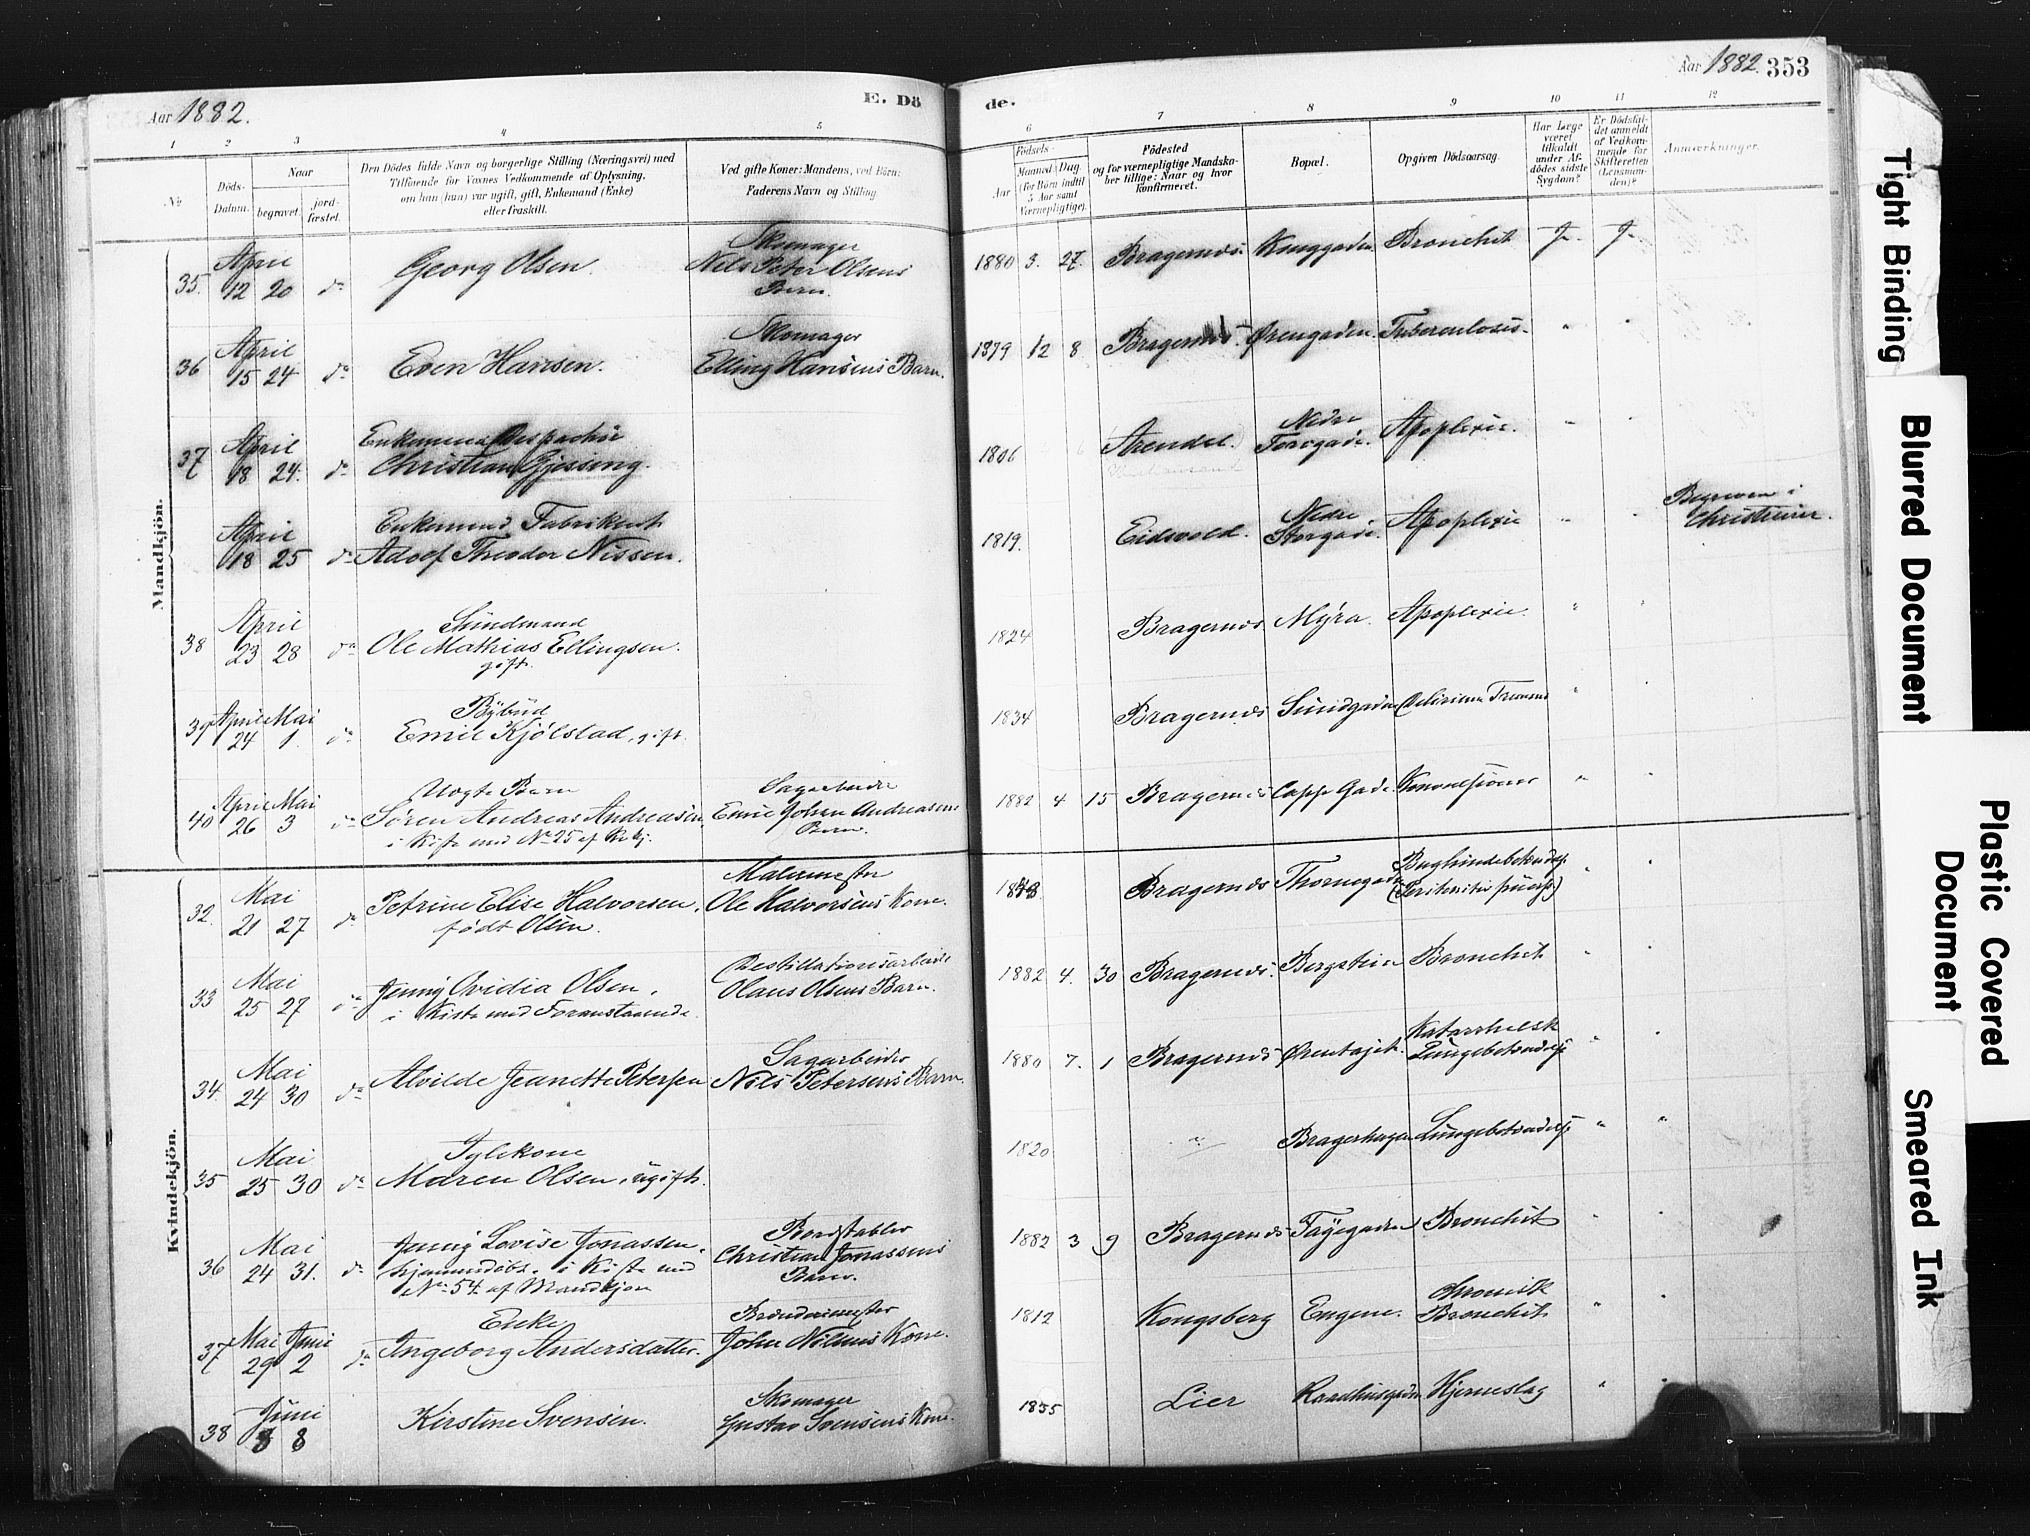 Aar 1882.
E. Dö
de.
Aar 1882. 353
1 2 3 4 5 6 7 8 9 10 11 12
No
Döds-
Datum.
Naar
begravet.
jord-
fæstet.
Den Dödes fulde Navn og borgerlige Stilling (Næringsvei) med
Tilföiende for Voxnes Vedkommende af Oplysning,
om han (hun) var ugift, gift, Enkemand (Enke)
eller fraskilt.
Ved gifte Koner: Mandens, ved Börn:
Faderens Navn og Stilling.
Födsels-
Aar
Maaned
Dag.
(for Börn indtil
5 Aar samt
Værnepligtige).
Födested
og for værnepligtige Mandska-
ber tillige: Naar og hvor
konfirmeret.
Bopæl.
Opgiven Dödsaarsag.
Har Læge
været
tilkaldt
under Af-
dödes sidste
Sygdom?
Er Dödsfal-
det anmeldt
af Vedkom-
mende for
Skifteretten
(Lensman-
den)?
Anmærkninger.
Mandkjön.
April Skomager
35. 12 20 do Georg Olsen. Nils Peter Olsens 1880 3. 27. Bragernæs. Konggaden Bronchit J. J.
Barn.
April Skomager
36 15 24 do Even Hansen. Elling Hansens Barn. 1879 12 8 Bragernæs. Ørengaden. Tuberculosis. " "
April Enkemand Dispachør Nedre
37 18 24. do Christian Gjessing. 1806 Arendal. Torvgade. Apoplexie. " "
April Enkemand Fabrikent Nedre Begraven i
18 25 do Adolf Theodor Nissen. 1819. Eidsvold. Storgade. Apoplexie " " Christiania.
April Sundmand
38 23 28 do Ole Mathias Ellingsen. 1824 Bragernæs. Myra. Apoplexie. " "
gift.
April Mai Bybud
39 24 1. do Emil Kjölstad, gift. 1834 Bragernæs Sundgaden Delirium Tremens " "
April Mai Uægte Barn Sagarbeider
40 26 3 do Sören Andreas Andreasen. Emil Johan Andreasens 1882 4 15 Bragernæs Cappe Gade Konvulsioner " "
i Kiste med No 25 af Kvkj. Barn.
Kvindekjön.
Mai Malermester Bughindebetændelse
32. 21 27 do Petrine Elise Halvorsen. Ole Halvorsens Kone. Bragernæs Thornegaden " "
født Olsen.
Mai Destillationsarbeider
33 25 27 do Jenny Ovidia Olsen, Olaus Olsens Barn. 1882 4. 30 Bragernæs. Bergstien Bronchit " "
i Kiste med Foranstaaende.
Mai Sagarbeider Katarrhalsk
34. 24 30 do Alvilde Jeanette Petersen Nils Petersens Barn. 1880 7. 1 Bragernæs Lungebetændelse " "
Mai
35 25 30 do Maren Olsen, ugift. 1820 " Bragerhagen Lungebetændelse " "
Mai Jenny Lovise Jonassen. Bordstabler
36 24 31. do hjemmedöbt. i Kiste med Christian Jonassens 1882 3 9 Bragernæs Bronchit " "
No 54 af Mandkjön Barn.
Mai Juni Enke Chronisk
37 29 2 do Ingeborg Andersdatter. John Nilsens Kone. 1812 Kongsberg Engene. Bronchit " "
Juni Skomager
38 8 Kirstine Svensen. Gustav Svensens Kone. 1835 Lier Raadhusgaden Hjerneslag " "
Tight Binding
Blurred Document
Plastic Covered
Document
Smeared Ink